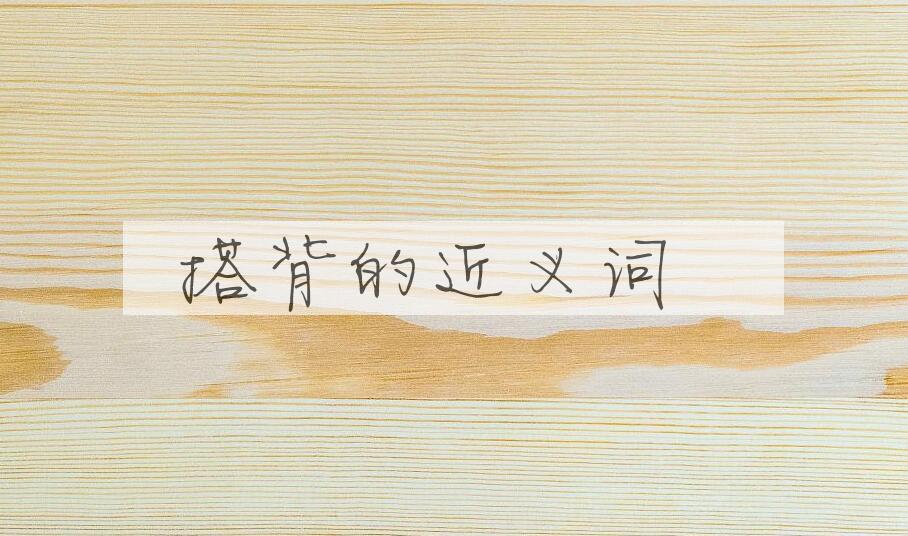 搭背的近义词